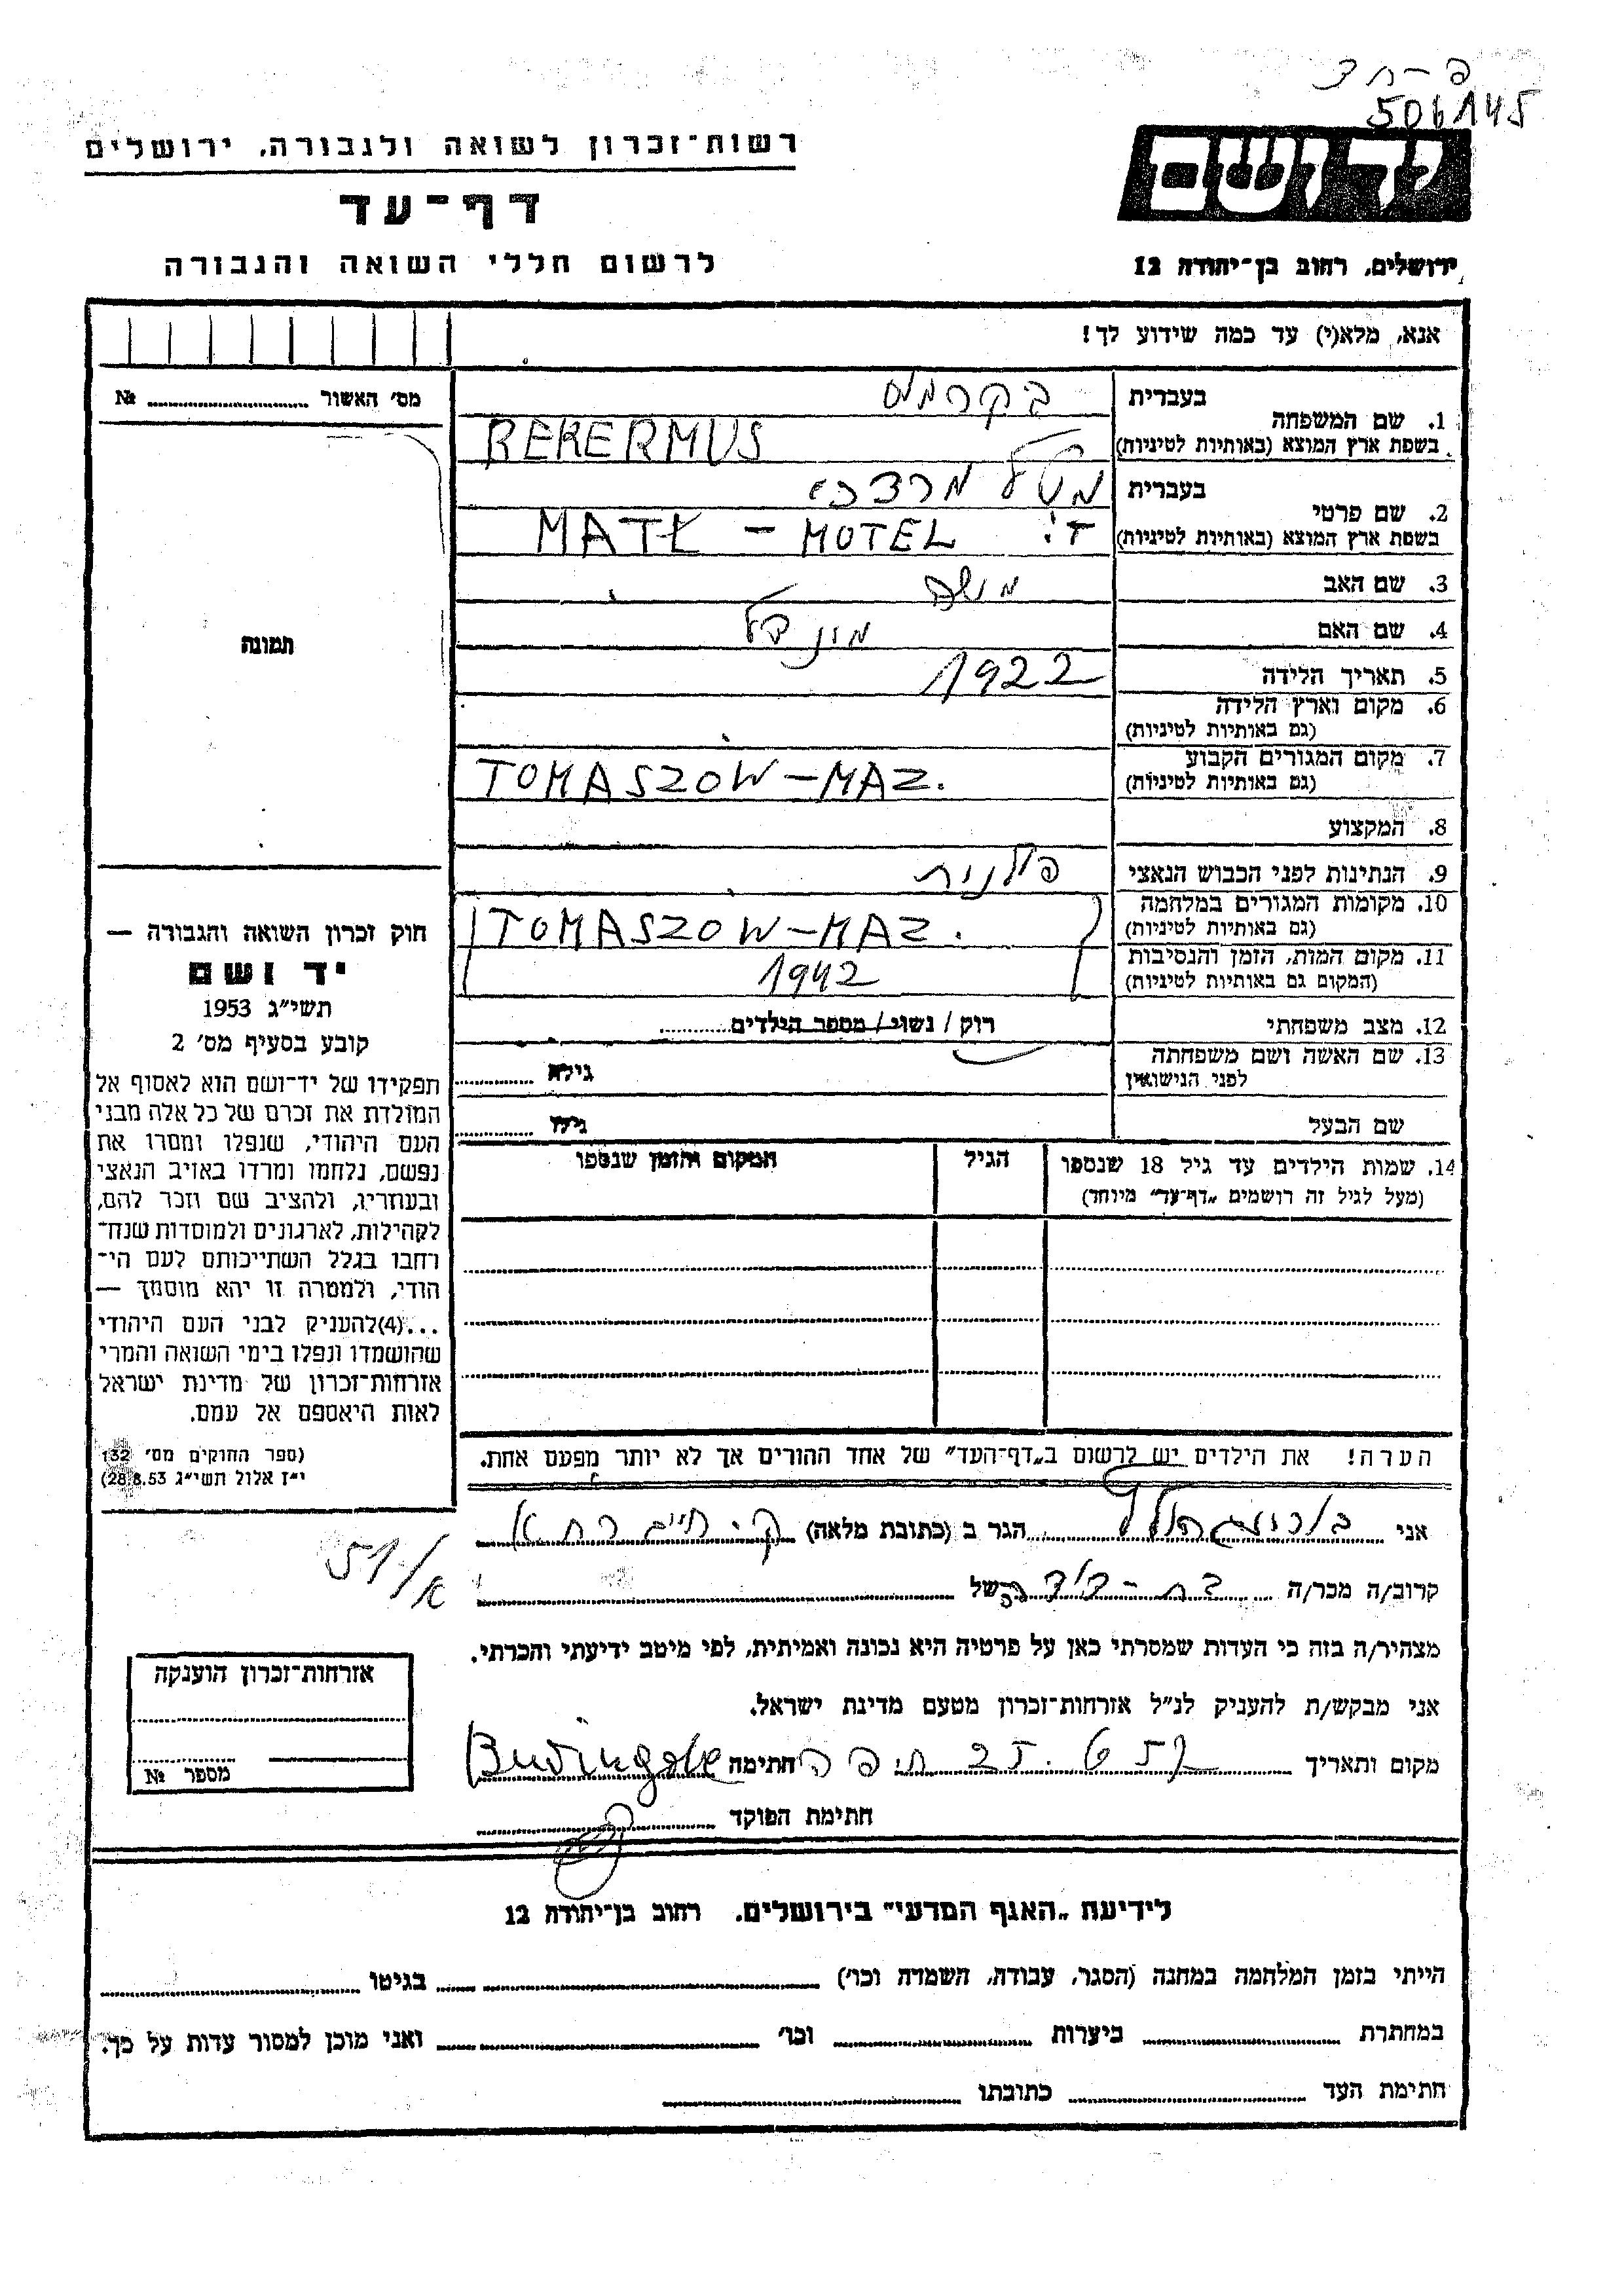 פ-ח צ
506145
רשות־זכרון לשואה ולגבורה, ירושלים
יד ושם
דף־עד
לרשום חללי השואה והגבורה
ירושלים, רחוב בן־יהודה 12
אנא, מלא(י) עד כמה שידוע לך!
מס׳ האשור № ........
תמונה
1. שם המשפחה
בעברית
בקרמוס
בשפת ארץ המוצא (באותיות לטיניות)
BEKERMUS
2. שם פרטי
בעברית
מטל מרדכי
בשפת ארץ המוצא (באותיות לטיניות)
MATŁ - MOTEL
3. שם האב משה
4. שם האם
5. תאריך הלידה 1922
6. מקום וארץ הלידה
(גם באותיות לטיניות)
7. מקום המגורים הקבוע
(גם באותיות לטיניות)
TOMASZOW-MAZ.
8. המקצוע
9. הנתינות לפני הכבוש הנאצי פולנית
10. מקומות המגורים במלחמה
(גם באותיות לטיניות)
TOMASZOW-MAZ.
11. מקום המות, הזמן והנסיבות
(המקום גם באותיות לטיניות)
1942
12. מצב משפחתי רוק / נשוי / מספר הילדים........
13. שם האשה ושם משפחתה
לפני הנישואין
גילה ........
שם הבעל גילו ........
14. שמות הילדים עד גיל 18 שנספו
(מעל לגיל זה רושמים „דף־עד״ מיוחד)
הגיל
המקום והזמן שנספו
הערה! את הילדים יש לרשום ב„דף־העד״ של אחד ההורים אך לא יותר מפעם אחת.
חוק זכרון השואה והגבורה —
יד ושם
תשי״ג 1953
קובע בסעיף מס׳ 2
תפקידו של יד־ושם הוא לאסוף אל
המולדת את זכרם של כל אלה מבני
העם היהודי, שנפלו ומסרו את
נפשם, נלחמו ומרדו באויב הנאצי
ובעוזריו, ולהציב שם וזכר להם,
לקהילות, לארגונים ולמוסדות שנח־
רחבו בגלל השתייכותם לעם הי־
הודי, ולמטרה זו יהא מוסמך —
...(4)להעניק לבני העם היהודי
שהושמדו ונפלו בימי השואה והמרי
אזרחות־זכרון של מדינת ישראל
לאות היאספם אל עמם.
(ספר החוקים מס׳ 132
י״ז אלול תשי״ג 28.8.53)
אני ........ הגר ב (כתובת מלאה) ק. חיים
51/א
קרוב/ה מכר/ה בת-דודה של ........
מצהיר/ה בזה כי העדות שמסרתי כאן על פרטיה היא נכונה ואמיתית, לפי מיטב ידיעתי והכרתי.
אני מבקש/ת להעניק לנ״ל אזרחות־זכרון מטעם מדינת ישראל.
מקום ותאריך חיפה 25.6.57 חתימה
חתימת הפוקד ........
אזרחות־זכרון הוענקה
מספר №
לידיעת „האגף המדעי״ בירושלים, רחוב בן־יהודה 12
הייתי בזמן המלחמה במחנה (הסגר, עבודה, השמדה וכו׳) ........ בגיטו ........
במחתרת ........ ביערות ........ וכו׳ ........ ואני מוכן למסור עדות על כך.
חתימת העד ........ כתובתו ........